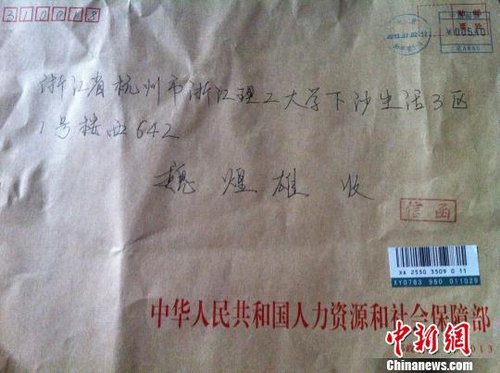 310018
¥00540
浙江省杭州市浙江理工大学下沙生活3区
1号楼西642
魏煜雄 收
信函
XA 2550 3509 0 11
中华人民共和国人力资源和社会保障部
中新网
Chinanews.com